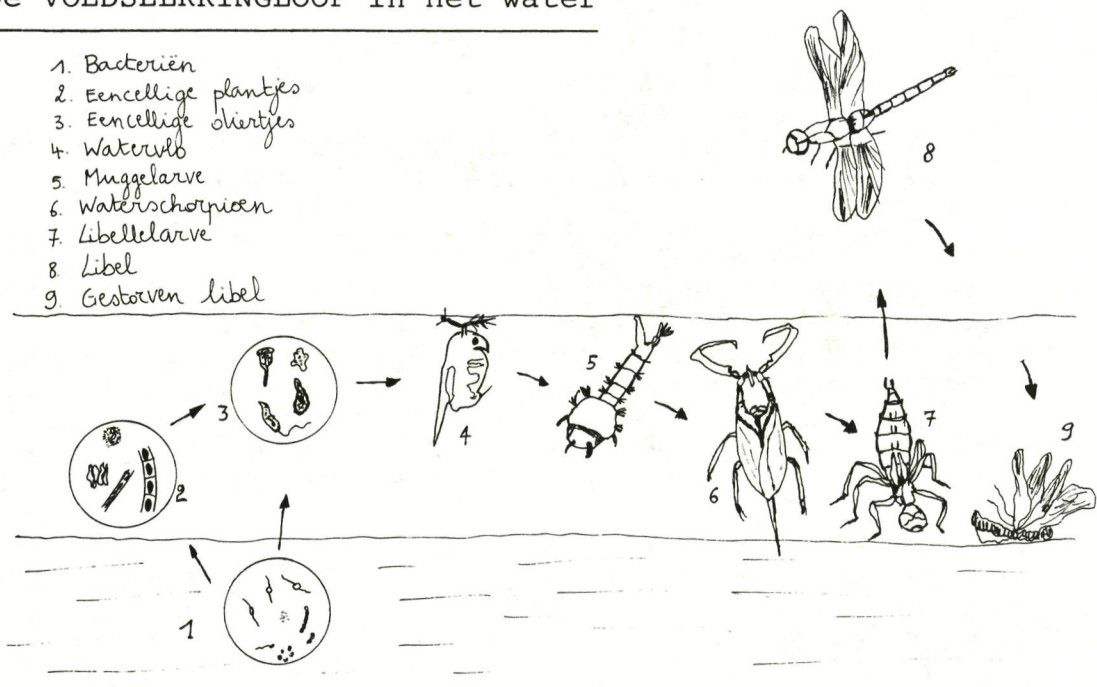 VOEDSELKRINGLOOP in het water
1. Bacteriën
2. Eencellige plantjes
3. Eencellige diertjes
4. Watervlo
5. Muggelarve
6. Waterschorpioen
7. Libellelarve
8. Libel
9. Gestorven libel
8
5
7
9
3
4
2
6
1